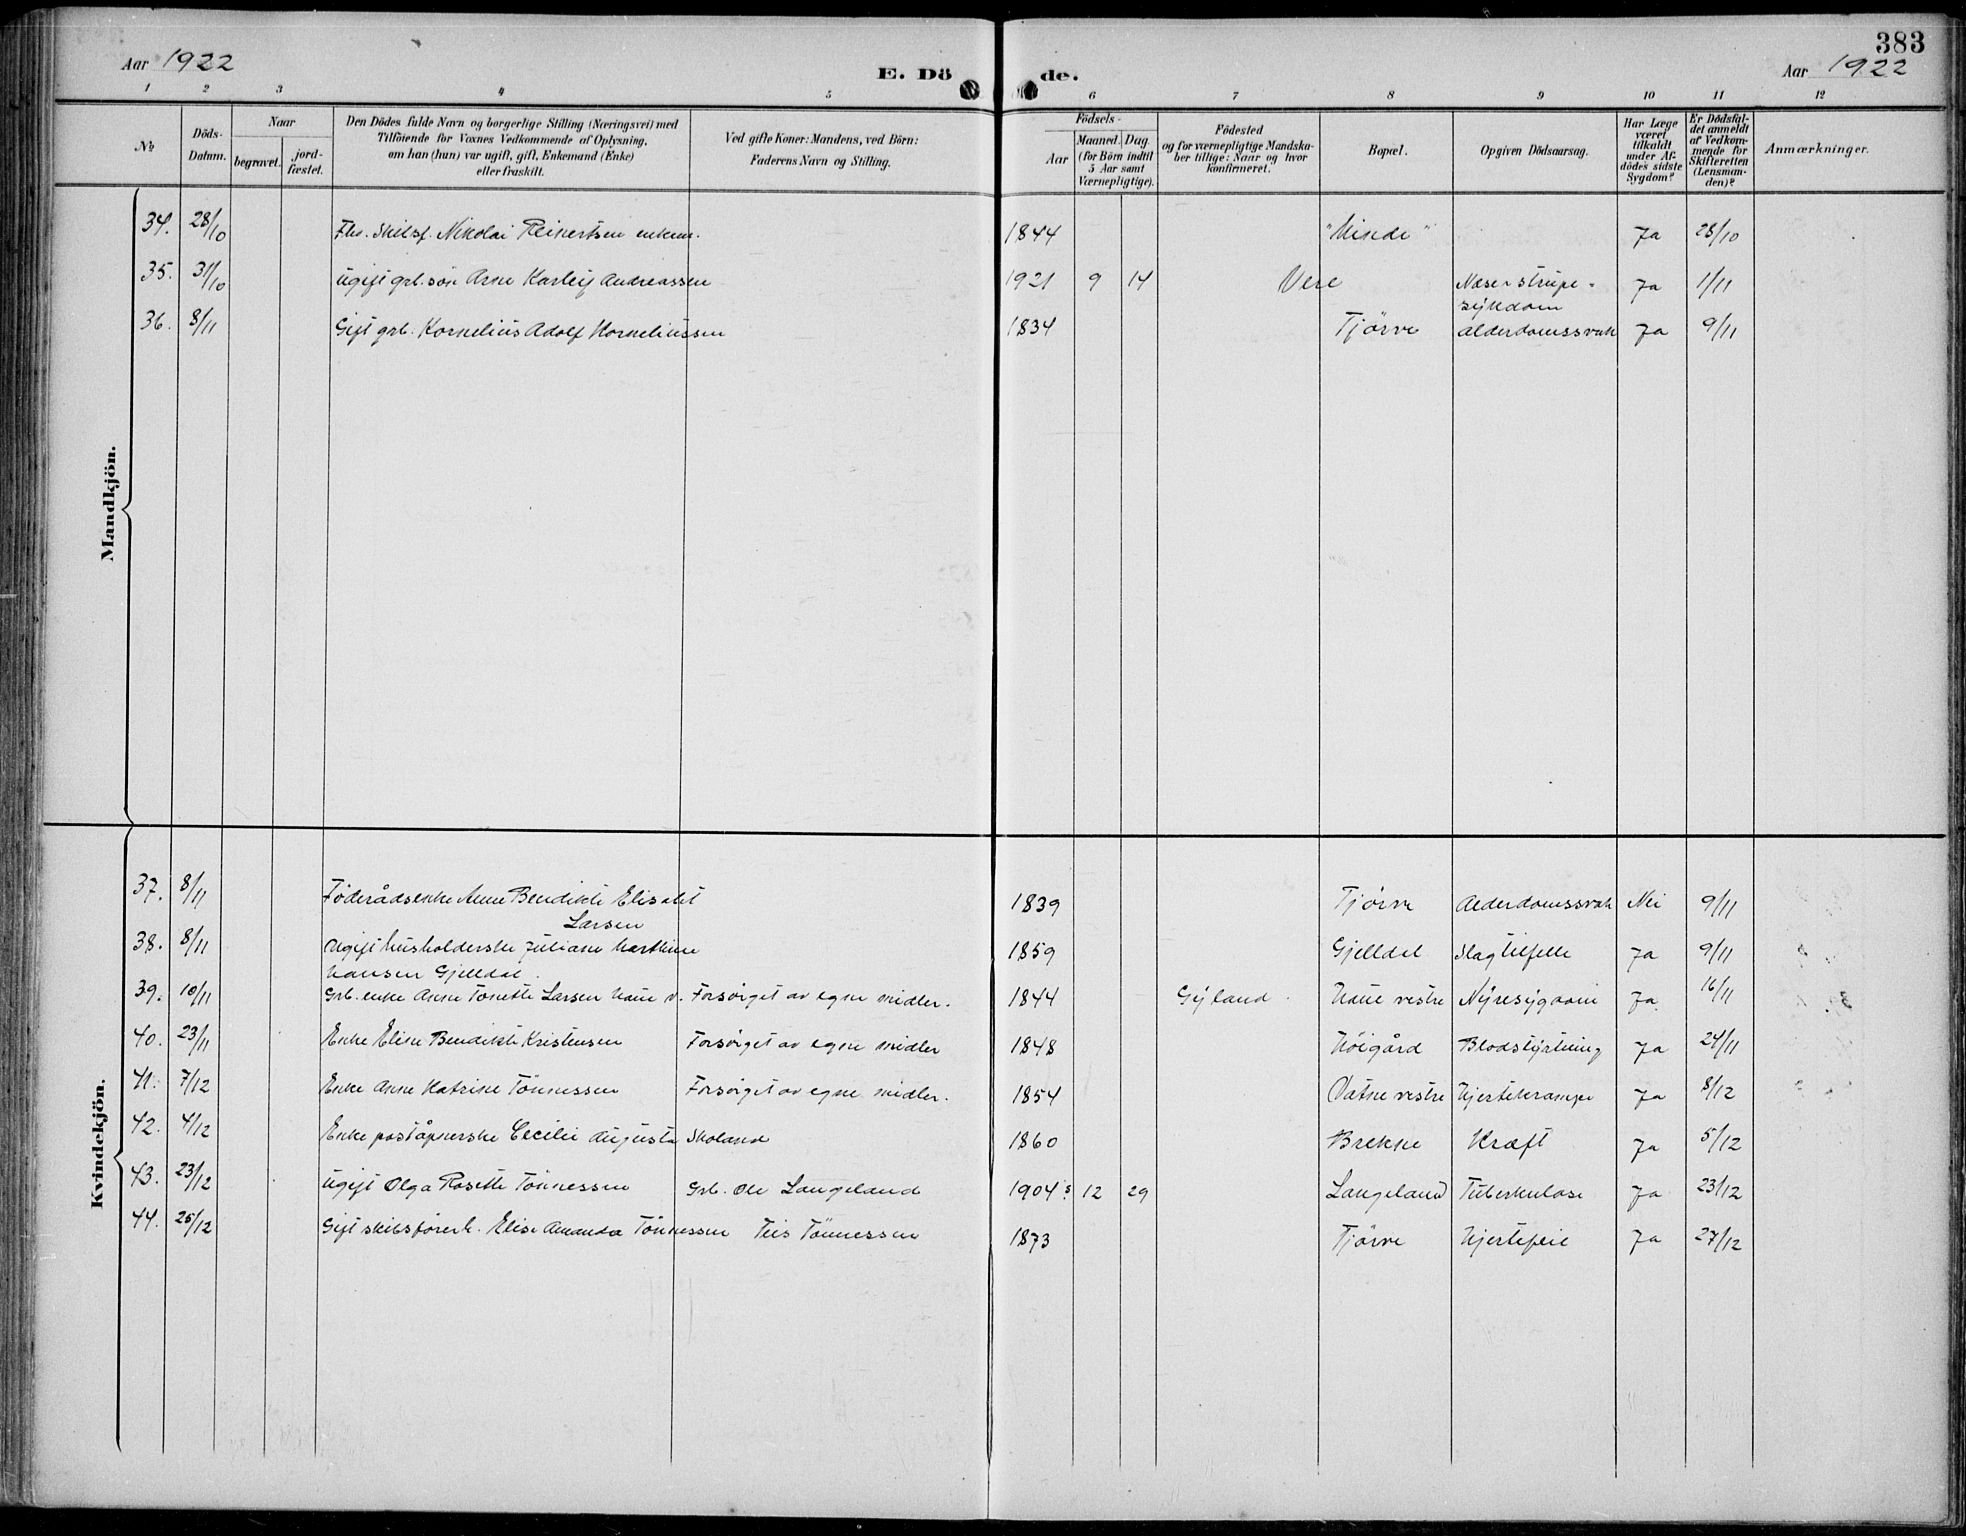 383
Aar 1922
E. Dö de.
Aar 1922
1 2 3 4 5 6 7 8 9 10 11 12
№
Döds-Datum.
Naar
begravet.
jord-fæstet.
Den Dödes fulde Navn og borgerlige Stilling (Næringsvei) med
Tilföiende for Voxnes Vedkommende af Oplysning,
om han (hun) var ugift, gift, Enkemand (Enke)
eller fraskilt.
Ved gifte Koner: Mandens, ved Börn:
Faderens Navn og Stilling.
Födsels-
Aar
Maaned. Dag
(for Börn indtil
5 Aar samt
Værnepligtige).
Födested
og for værnepligtige Mandska-
ber tillige: Naar og hvor
konfirmeret.
Bopæl.
Opgiven Dödsaarsag.
Har Læge
været
tilkaldt
under Af-
dödes sidste
Sygdom?
Er Dödsfal-
det anmeldt
af Vedkom-
mende for
Skifteretten
(Lensman-
den)?
Anmærkninger.
Mandkjön.
34. 28/10 Fhv. Skibsf. Nikolai Reinertsen enkem. 1844 "Minde" Ja 28/10
35. 31/10 Ugift grb. søn Arne Karleif Andreassen 1921 9 14 Vere Næse strupe- Ja 1/11
sykdom
36. 8/11 Gift grb. Kornelius Adolf Korneliussen 1834 Tjörve Alderdomssvak Ja 9/11
Kvindekjön.
37. 8/11 Föderådsenke Anne Bendikte Elisabet 1839 Tjörve Alderdomssvak Nei 9/11
Larsen
38. 8/11 Ugift husholderske Juliane Marthine 1859 Gjelldal Slagtilfelle Ja 9/11
Hansen Gjelldal.
39. 10/11 Grb. enke Anne Tonette Larsen Haue v. Forsörget av egne midler. 1844 Gyland Haue vestre Nyresygdom Ja 16/11
40. 23/11 Enke Eline Bendikte Kristensen Forsörget av egne midler 1848 Höigård Blodstyrtning Ja 24/11
41. 7/12 Enke Anne Katrine Tönnessen Forsörget av egne midler. 1854 Vatne vestre Hjertekrampe Ja 8/12
42. 4/12 Enke poståpnerske Cecilie Augusta Skoland 1860 Brekke Kræft Ja 5/12
43. 23/12 Ugift Olga Rosette Tönnessen Grb. Ole Langeland 1904 12 29 Langeland Tuberkulose Ja 23/12
44. 25/12 Gift skibsförerk. Elise Amanda Tönnessen Teis Tönnessen 1873 Tjörve Hjertefeil Ja 27/12